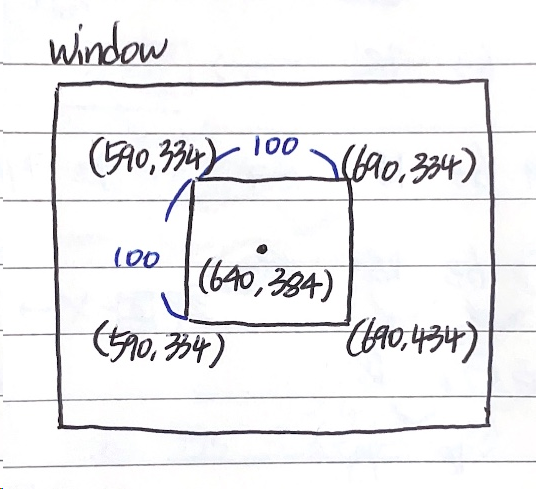 window
(590,334) 100 (690,334)
100
(640,384)
(590,334) (690,434)